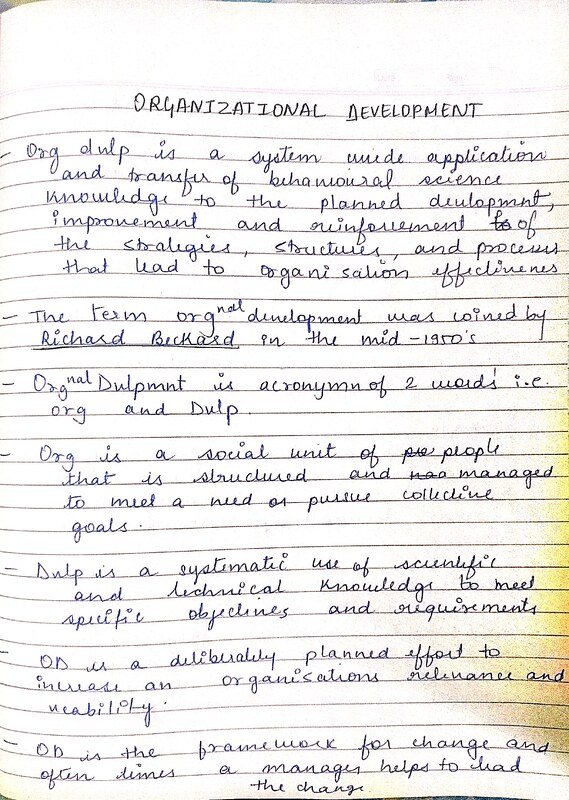 ORGANIZATIONAL DEVELOPMENT
- Org dvlp is a system wide application
and transfer of behavioural science
knowledge to the planned devlopmnt,
improvement and reinforcement to of
the strategies, structures, and processes
that lead to organisation effectivenes
- The term orgnal development was coined by
Richard Beckard in the mid-1950's
- Orgnal Dvlpmnt is acronymn of 2 words i.e.
org and Dvlp.
- Org is a social unit of people
that is structured and managed
to meet a need or pursue collective
goals.
- Dvlp is a systematic use of scientific
and technical knowledge to meet
specific objectives and requirements
- OD is a deliberately planned effort to
increase an organisations relevance and
viability.
- OD is the framework for change and
often times a manager helps to lead
the change.